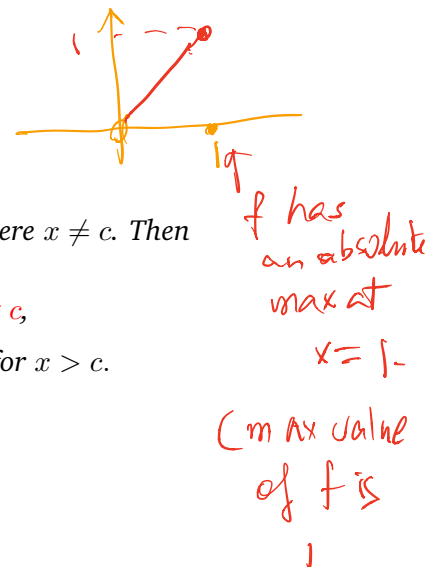 1
1
ere x ≠ c. Then
c,
for x > c.
f has
an absolute
max at
x = 1.
(max value
of f is
1